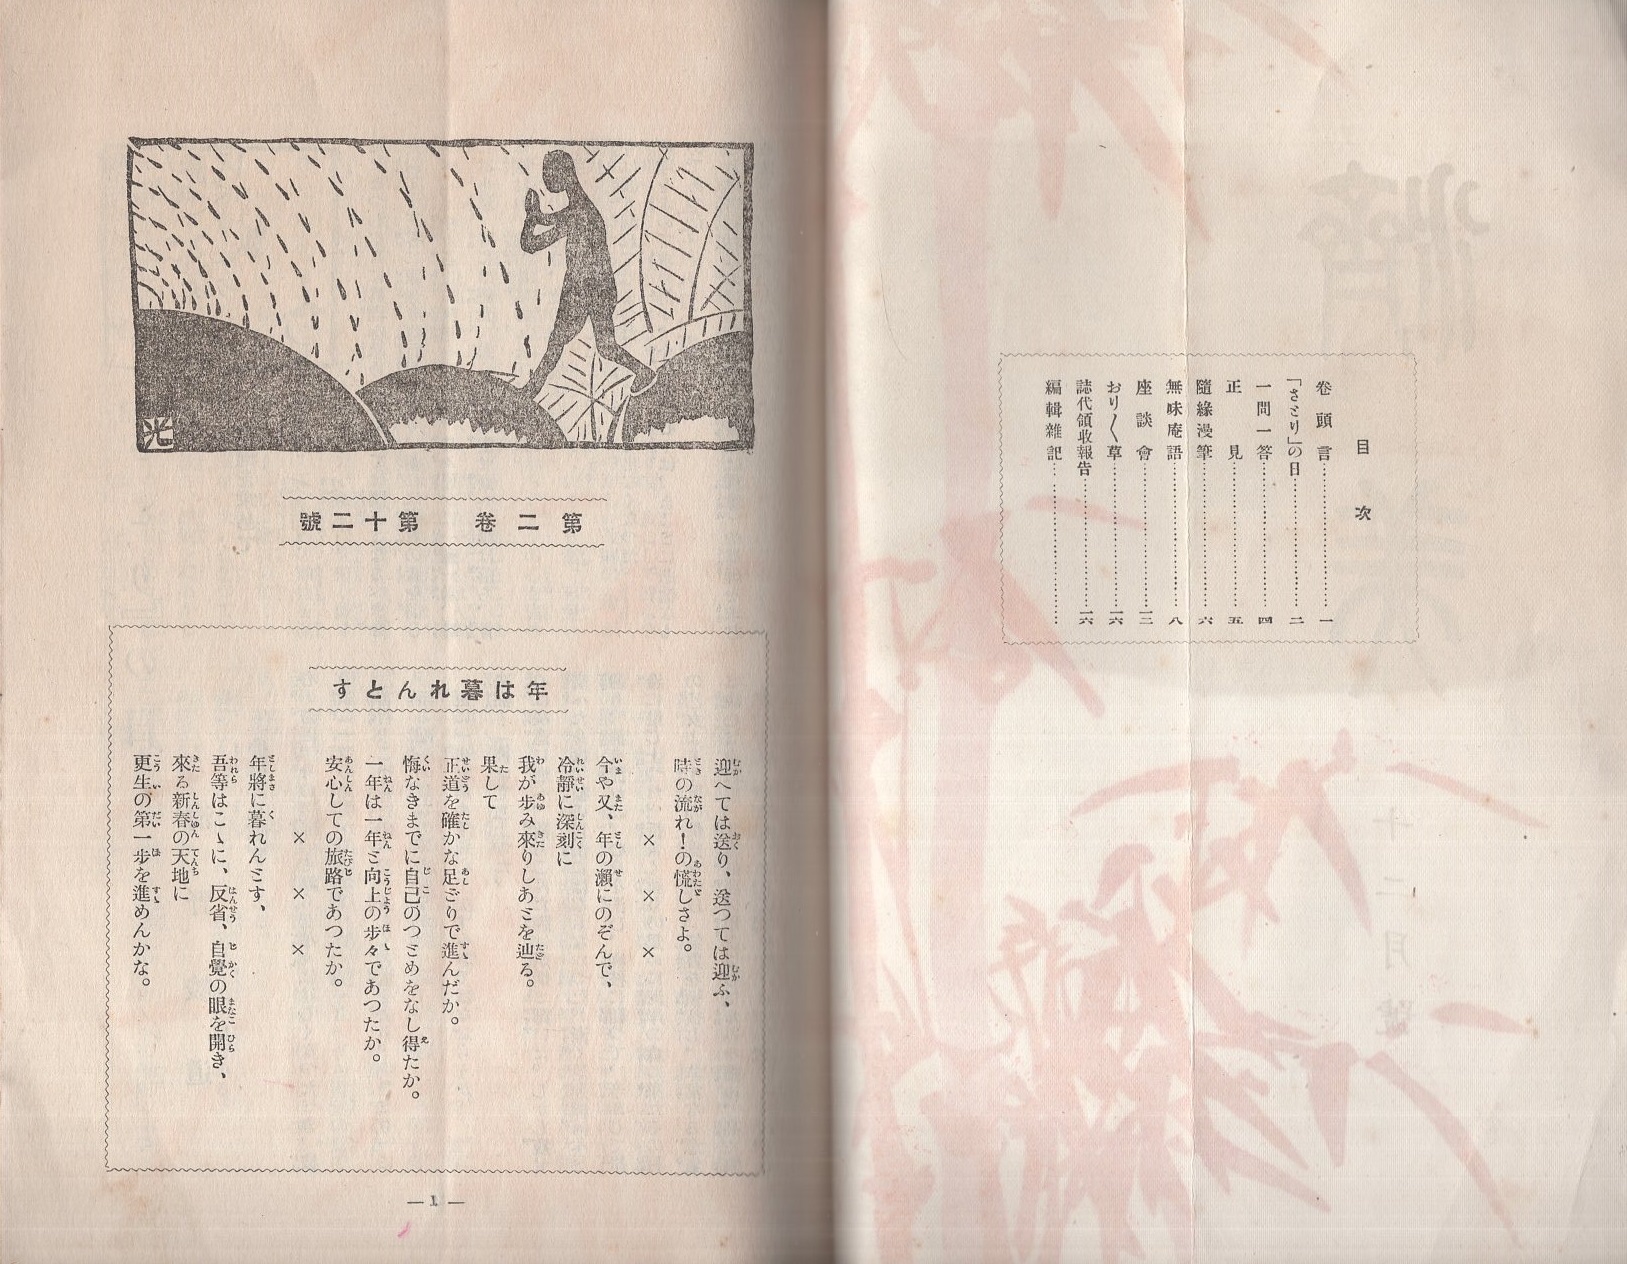 目次
卷頭言……一
「さとり」の日……二
一問一答……四
正見……五
隨緣漫筆……六
無味庵語……八
座談會……一二
おり〱草……一六
誌代領收報告……一六
編輯雜記……
光
第二卷 第十二號
年は暮れんとす
迎へては送り、送つては迎ふ、
時の流れ！の慌しさよ。
× × ×
今や又、年の瀨にのぞんで、
冷靜に深刻に
我が歩み來りしあとを辿る。
果して
正道を確かな足どりで進んだか。
悔なきまでに自己のつとめをなし得たか。
一年は一年と向上の歩々であつたか。
安心しての旅路であつたか。
× × ×
年將に暮れんとす、
吾等はこゝに、反省、自覺の眼を開き、
來る新春の天地に
更生の第一歩を進めんかな。
— 1 —